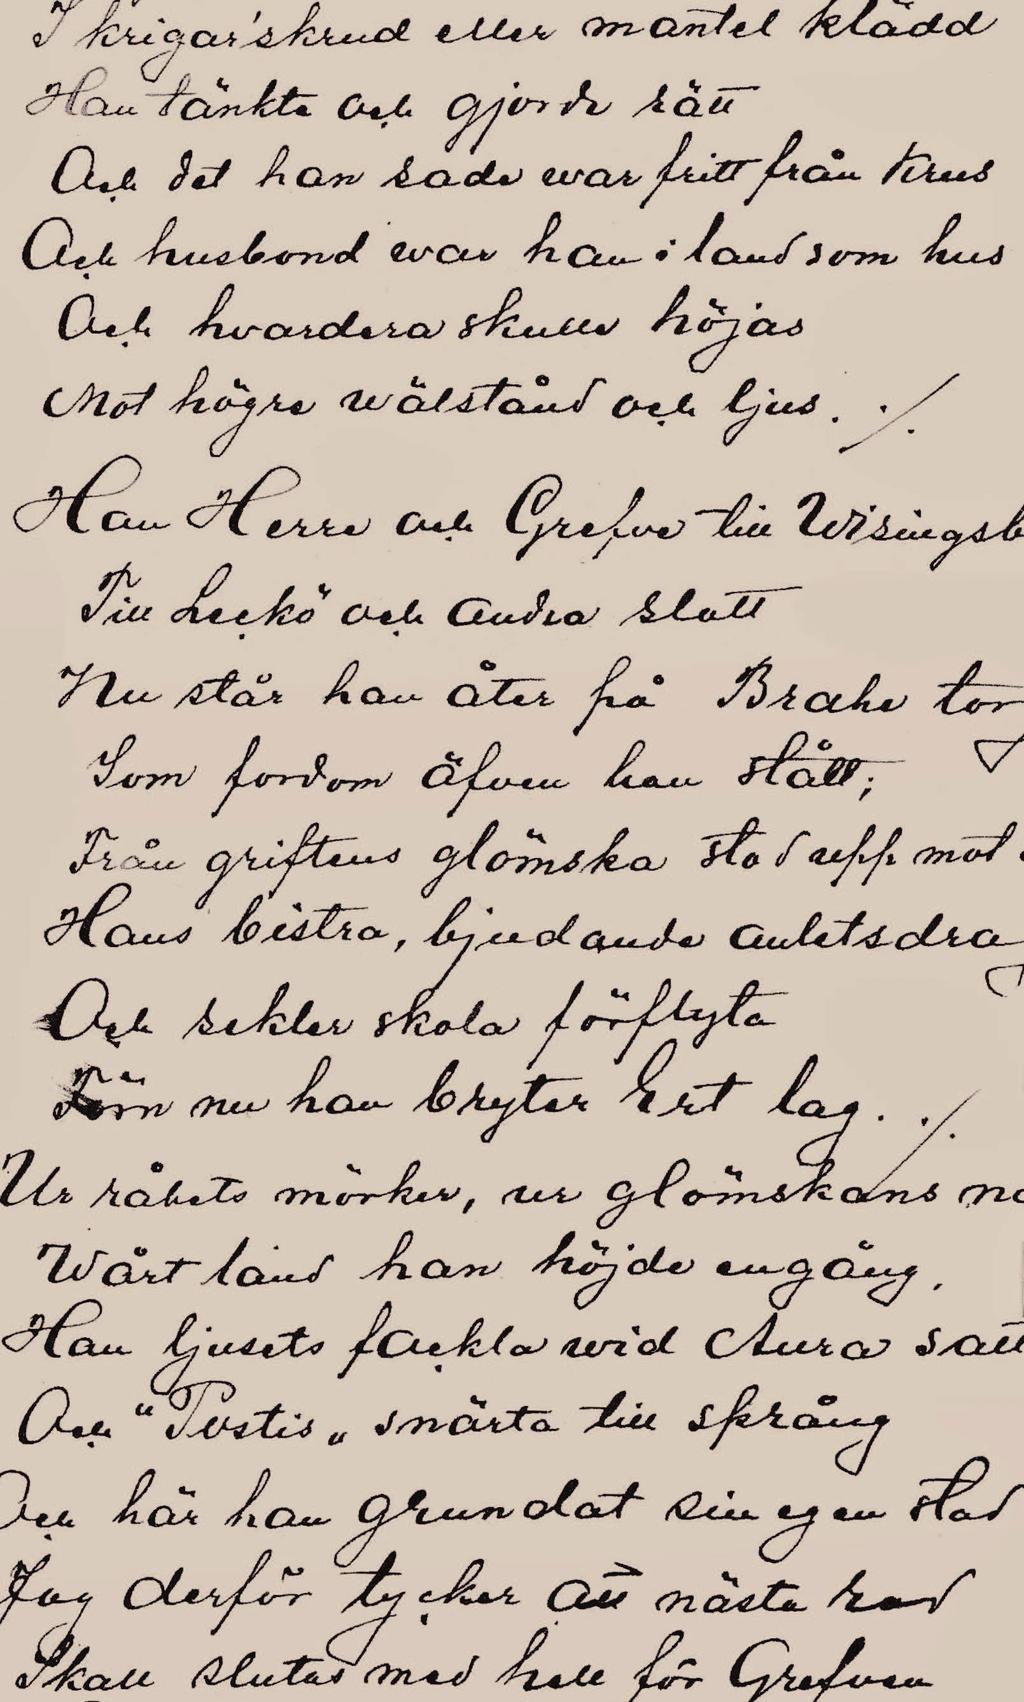 I krigar'skrud eller mantel klädd
Han tänkte och gjorde rätt
Och det han sade war fritt från krus
Och husbond war han i land som hus
Och hvardera skulle höjas
Mot högre wälstånd och ljus. ./.
Han Herre och Grefve till Wisingsb
Till Leckö och andra slott
Nu står han åter på Brahe tor
Som fordom äfven han stått;
Från griftens glömska stod upp mot
Hans bistra, bjudande anletsdra
Och sekler skola förflyta
Förn nu han bryter Ert lag. ./.
Ur råhets mörker, ur glömskans na
Wårt land han höjde engång,
Han ljusets fackla wid Aura satt
Och "Postis„ snärta till språng
Och här han grundat sin egen stad
Jag derför tycker att nästa rad
Skall slutas med hell för Grefven